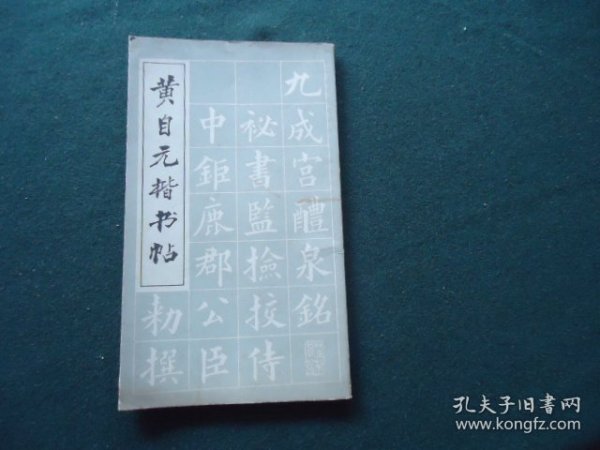 黄自元楷书帖
九成宫醴泉銘
秘書監撿挍侍
中鉅鹿郡公臣
勑撰
孔夫子旧书网
www.kongfz.com